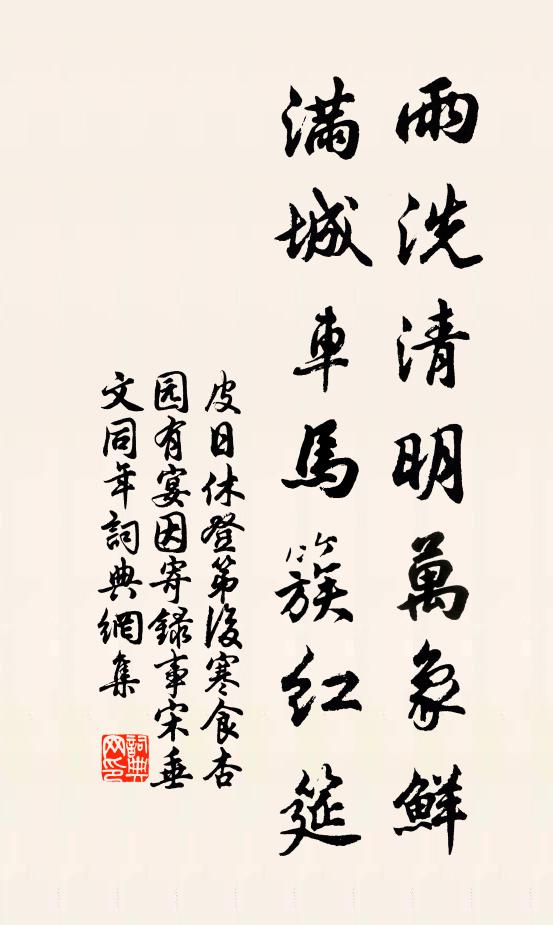 雨洗清明萬象鮮
滿城車馬簇紅筵
皮日休登第後寒食杏
园有宴因寄錄事宋垂
文同年詞典網集
詞典
网印